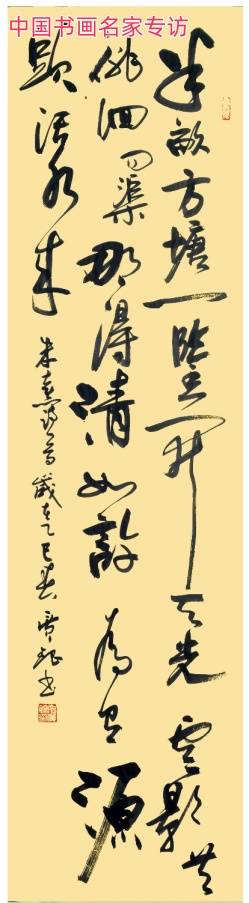 中国书画名家专访
半畝方塘一鉴开天光雲影共
徘徊问渠那得清如許为有源
頭活水来
朱熹诗一首歲在乙巳春書